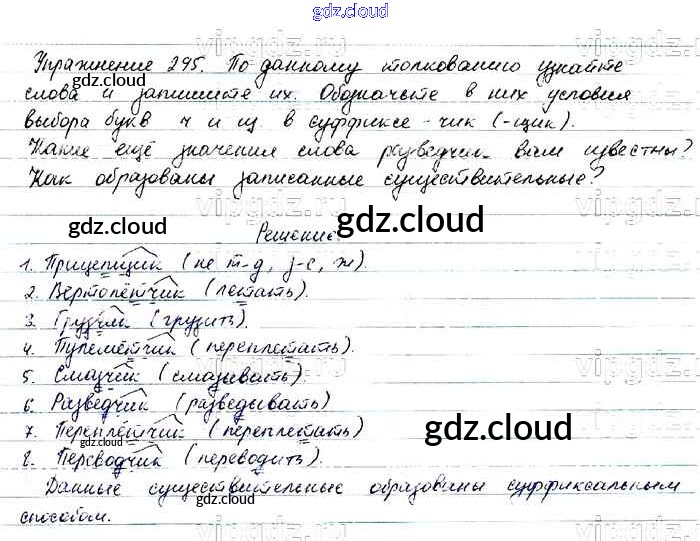 gdz.cloud
Упражнение 295. По данному толкованию узнайте
слова и запишите их. Обозначьте в них условия
выбора букв ч и щ в суффиксе -чик (-щик).
Какие ещё значения слова разведчик вам известны?
Как образованы записанные существительные?
Решение.
1. Прицепщик (не т-д, з-с, ж).
2. Вертолётчик (летать).
3. Грузчик (грузить).
4. Пулемётчик (переплетать).
5. Смазчик (смазывать).
6. Разведчик (разведывать)
7. Переплётчик (переплетать).
8. Переводчик (переводить).
Данные существительные образованы суффиксальным
способом.
gdz.cloud
gdz.cloud
gdz.cloud
gdz.cloud
gdz.cloud
gdz.cloud
gdz.cloud
gdz.cloud
vipgdz.ru
vipgdz.ru
vipgdz.ru
vipgdz.ru